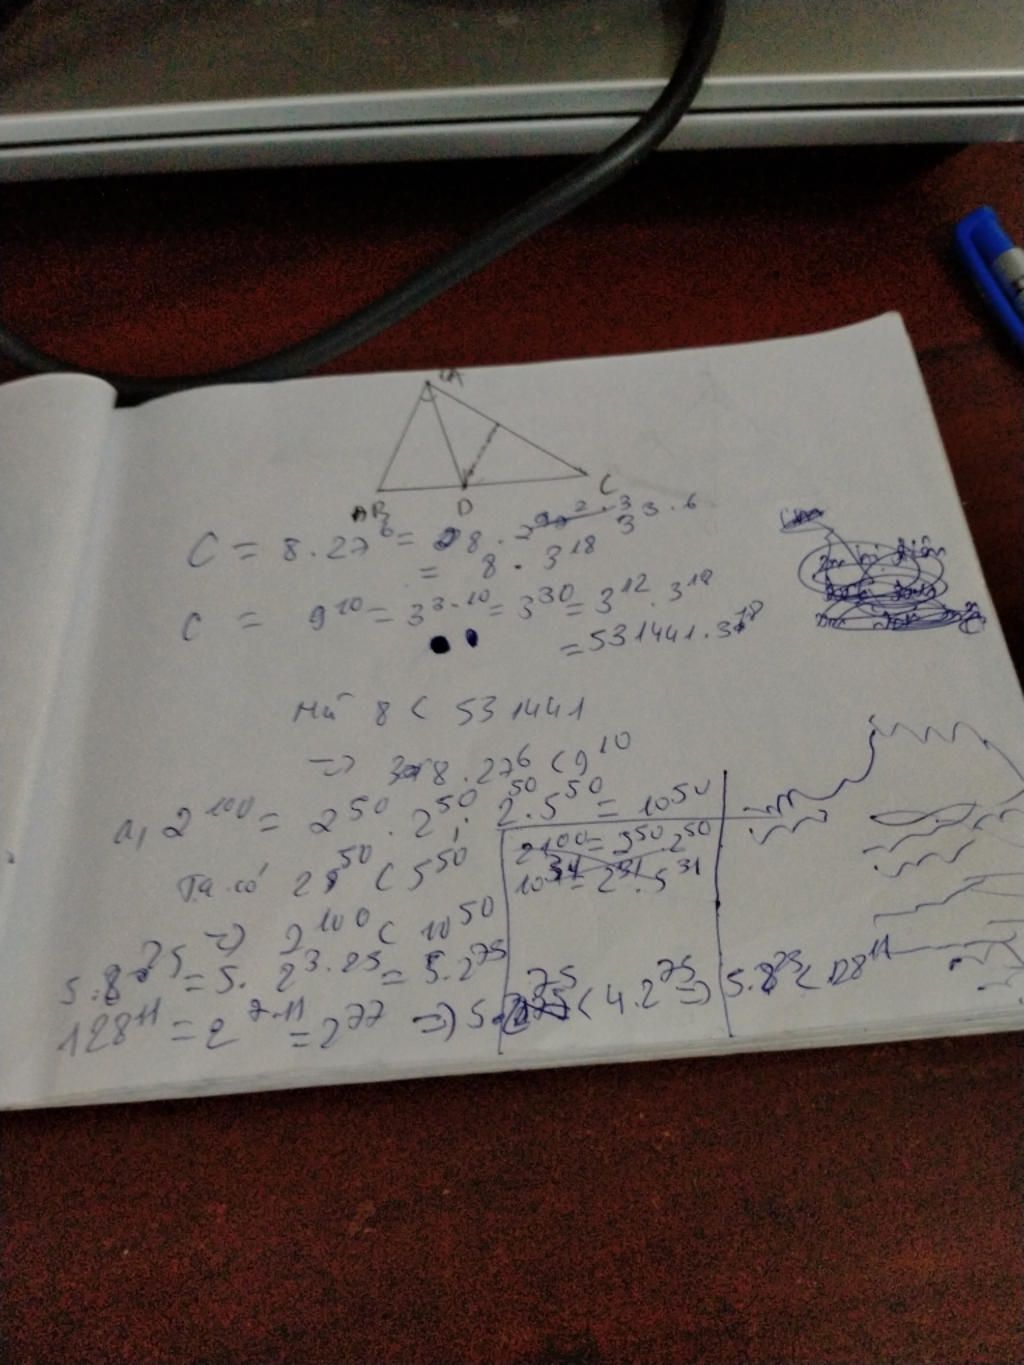 A
B D C
C = 8 . 27⁶ = 8 . 3^3.6
= 8 . 3¹⁸
C = 9¹⁰ = 3^3.10 = 3³⁰ = 3¹² . 3¹⁸
= 531441 . 3¹⁸
Mà 8 < 531441
=> 8 . 27⁶ < 9¹⁰
a, 2¹⁰⁰ = 2⁵⁰ . 2⁵⁰ ; 2⁵⁰ . 5⁵⁰ = 10⁵⁰
2¹⁰⁰ = 2⁵⁰ . 2⁵⁰
10³¹ = 2³¹ . 5³¹
Ta có 2⁵⁰ < 5⁵⁰
=> 2¹⁰⁰ < 10⁵⁰
5 . 8²⁵ = 5 . 2^3.25 = 5 . 2⁷⁵
128¹¹ = 2^7.11 = 2⁷⁷ => 5 . 2⁷⁵ < 4 . 2⁷⁵ => 5 . 8²⁵ < 128¹¹